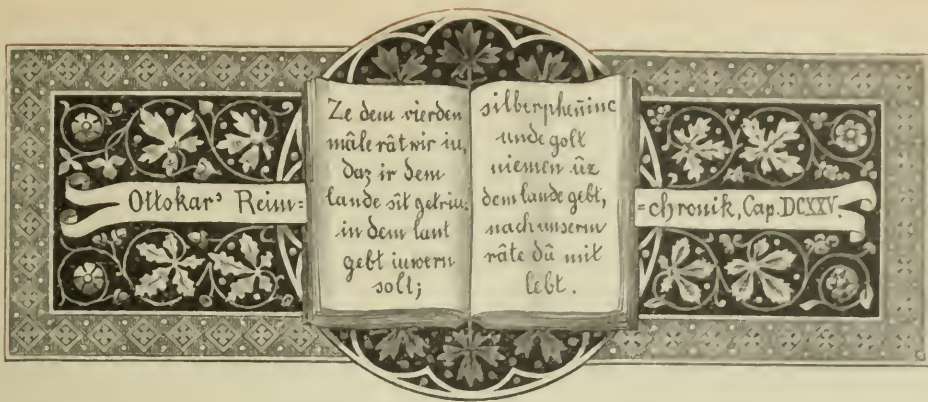 Ottokar's Reim=
Ze dem vierden
mâle rât wir iu,
daz ir dem
lande sît getriu.
in dem lant
gebt iuwern
solt;
silberphen̄inc
unde golt
niemen ûz
dem lande gebt,
nach unserm
râte dâ mit
lebt.
=chronik, Cap. DCXXV.